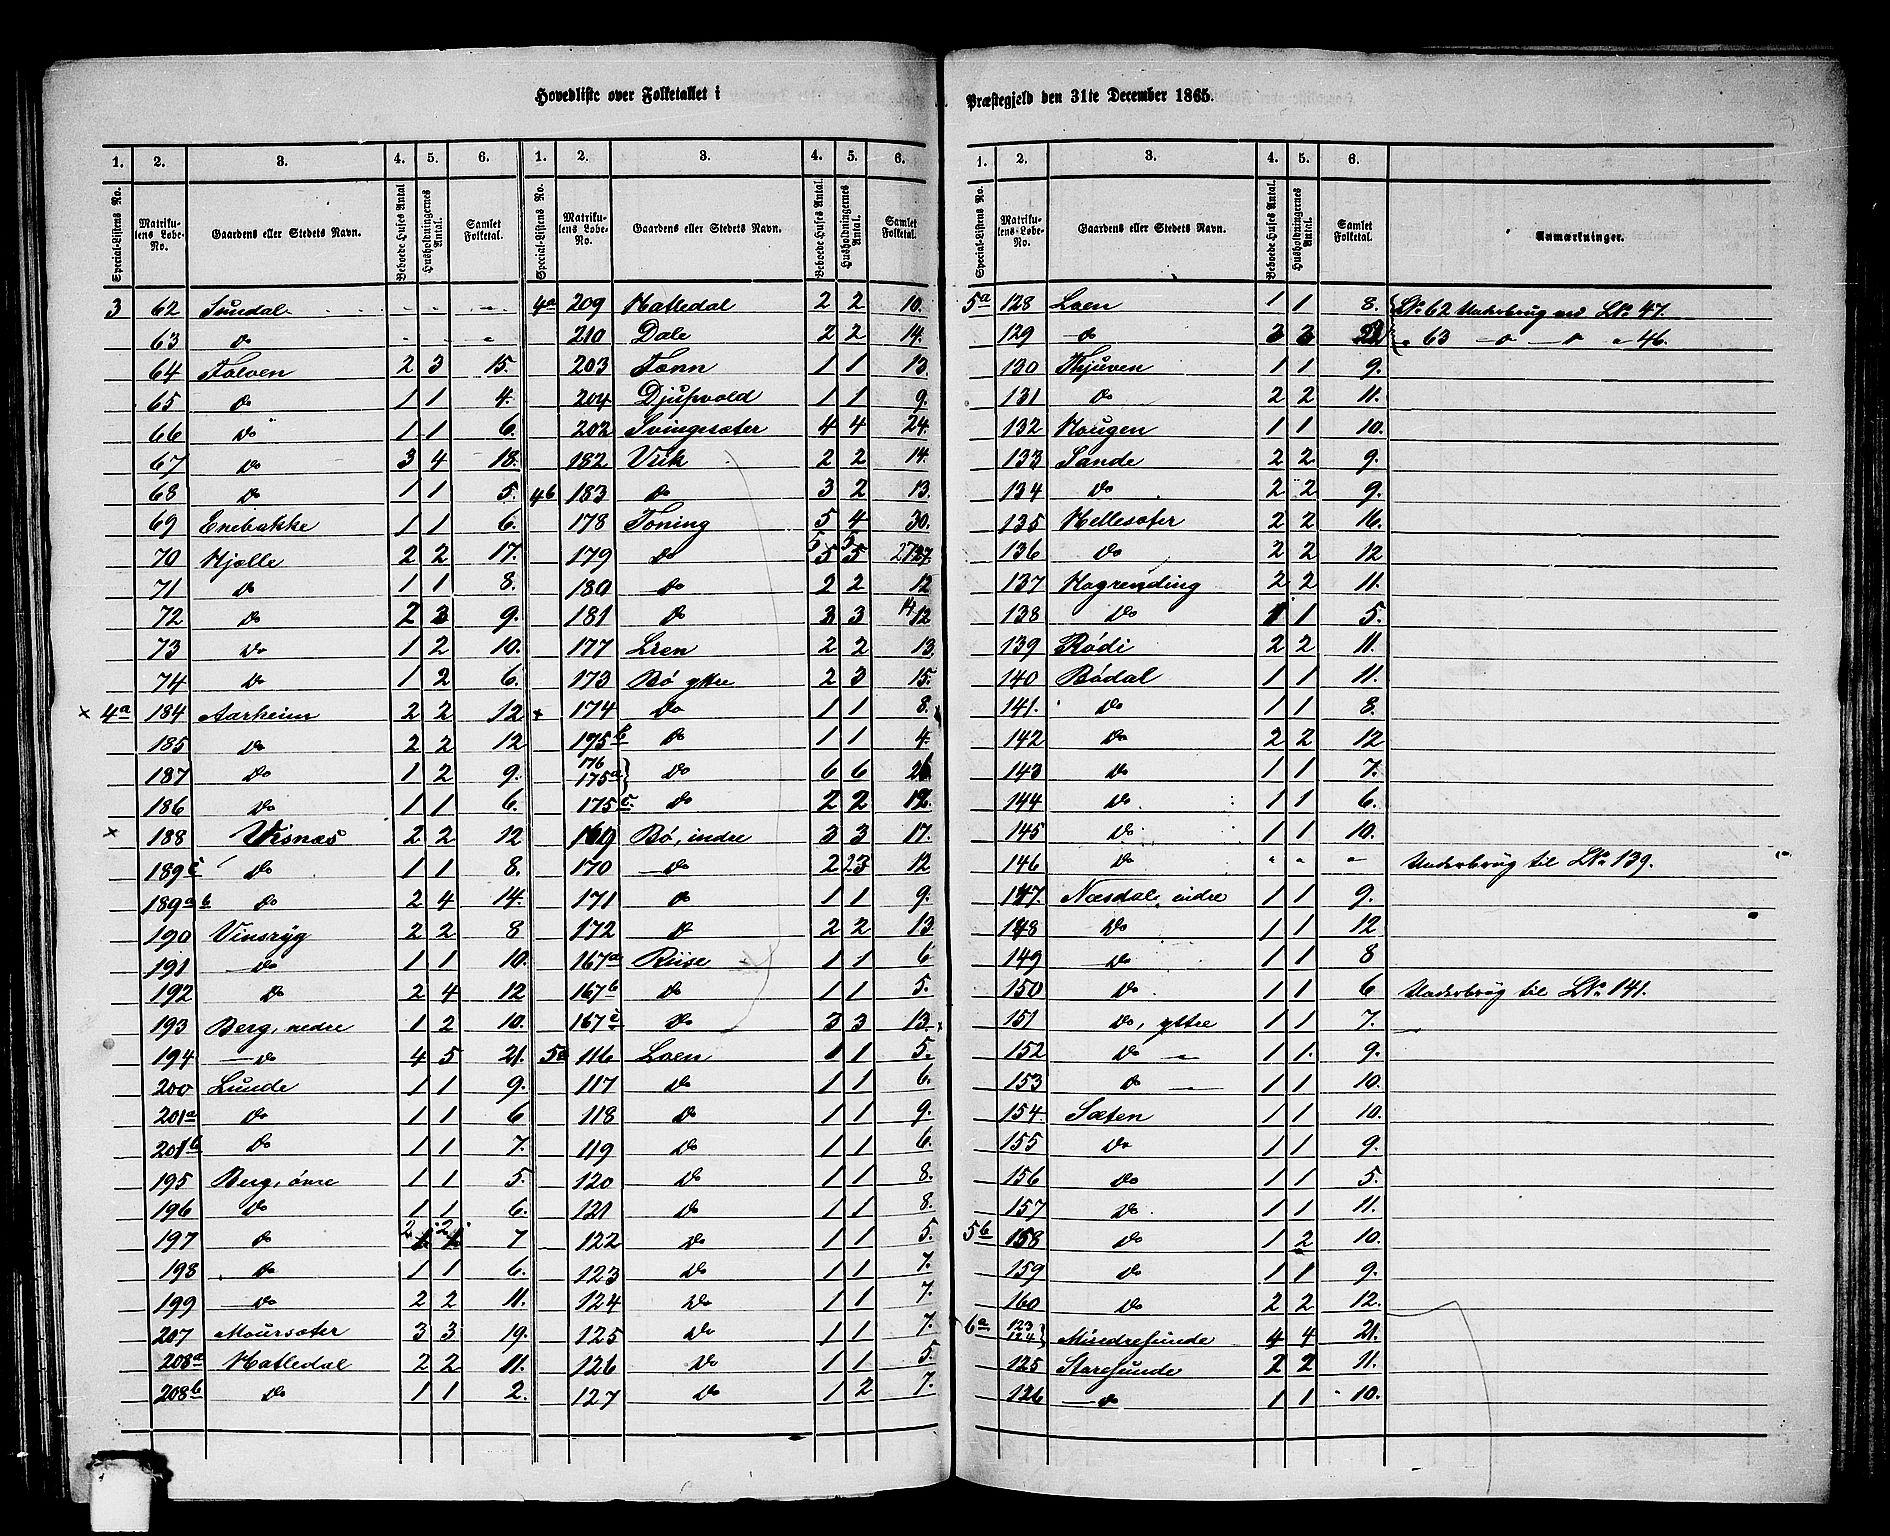 Hovedliste over Folketallet i
Præstegjeld den 31te December 1865.
1. 2. 3. 4. 5. 6.
Special-Listens No. Matrikulens Løbe-No. Gaardens eller Stedets Navn. Beboede Huses Antal Husholdningernes Antal. Samlet Folketal.
3 62 Sundal - - -
63 do - - -
64 Folven 2 3 15.
65 do 1 1 4.
66 do 1 1 6.
67 do 3 4 18.
68 do 1 1 5.
69 Enebakke 1 1 6.
70 Hjelle 2 2 17.
71 do 1 1 8.
72 do 2 3 9.
73 do 1 2 10.
74 do 1 2 6.
× 4a 184 Aarheim 2 2 12
185 do 2 2 12
187 do 1 2 9.
186 do 1 1 6.
× 188 Visnæs 2 2 12
189c do 1 1 8.
189a b do 2 4 14.
190 Vinsryg 2 2 8
191 do 1 1 10.
192 do 2 4 12
193 Berg, nedre 1 2 10.
194 do 4 5 21.
200 Lunde 1 1 9.
201a do 1 1 6
201b do 1 1 7.
195 Berg, øvre 1 1 5.
196 do 1 1 6.
197 do 2 2 7
198 do 1 1 6.
199 do 2 2 11.
207 Maursæter 3 3 19.
208a Hatledal 2 2 11.
208b do 1 1 2.
1. 2. 3. 4. 5. 6.
Special-Listens No. Matrikulens Løbe-No. Gaardens eller Stedets Navn. Beboede Huses Antal. Husholdningernes Antal. Samlet Folketal.
4a 209 Hatledal 2 2 10.
210 Dale 2 2 14.
203 Tonn 1 1 13.
204 Djupvold 1 1 9.
202 Svingesæter 4 4 24.
182 Vik 2 2 14.
4b 183 do 3 2 13.
178 Toning 5 4 30.
179 do 5 5 27.
180 do 2 2 12
181 do 3 3 14 12
177 Lien 2 2 13.
173 Bø ytre 2 3 15.
× 174 do 1 1 8.
175b do 1 1 4.
176 175a } do 6 6 26
175c. do 2 2 12.
169 Bø, indre 3 3 17.
170 do 2 23 12
171 do 1 1 9.
172 do 2 2 13
167a Riise 1 1 6
167b do 1 1 5.
167c do 3 3 13.
5a 116 Loen 1 1 5.
117 do 1 1 6.
118 do 1 1 9.
119 do 1 1 6.
120 do 1 1 8.
121 do 1 1 8.
122 do 1 1 5.
123 do 1 1 7.
124 do 1 1 7.
125 do 1 1 7.
126 do 1 1 5.
127 do 1 2 7.
1. 2. 3. 4. 5. 6.
Special-Listens No. Matrikulens Løbe-No. Gaardens eller Stedets Navn. Beboede Huses Antal. Husholdningernes Antal. Samlet Folketal. Anmærkninger.
5a 128 Loen 1 1 8. LNo 62 Underbrug med LNo 47.
129 do 3 3 22 " 63 do " 46.
130 Thjuven 1 1 9.
131 do 2 2 11.
132 Hougen 1 1 10.
133 Sande 2 2 9.
134 do 2 2 9.
135 Hellesæter 2 2 16.
136 do 2 2 12
137 Hogrending 2 2 11.
138 do 1 1 5.
139 Rødi 2 2 11.
140 Bødal 1 1 11.
141. do 1 1 8.
142 do 2 2 12
143 do 1 1 7.
144 do 1 1 6.
145 do 1 1 10.
146 do " " " Underbrug til LNo 139.
147. Næsdal, indre 1 1 9.
148 do 1 1 12
149 do 1 1 8
150 do 1 1 6 Underbrug til LNo 141.
151 do, ytre 1 1 7.
152 do " 1 1. 9.
153 do 1 1 10.
154 Sæten 1 1 10.
155 do 1 1 9.
156 do 1 1 5.
157 do 1 1 11.
5b 158 do 1 2 10.
159 do 1 1 9.
160 do 2 2 12.
6a 123 124 } Mindresunde 4 4 21.
125 Storesunde 2 2 11.
126 do 1 1 10.